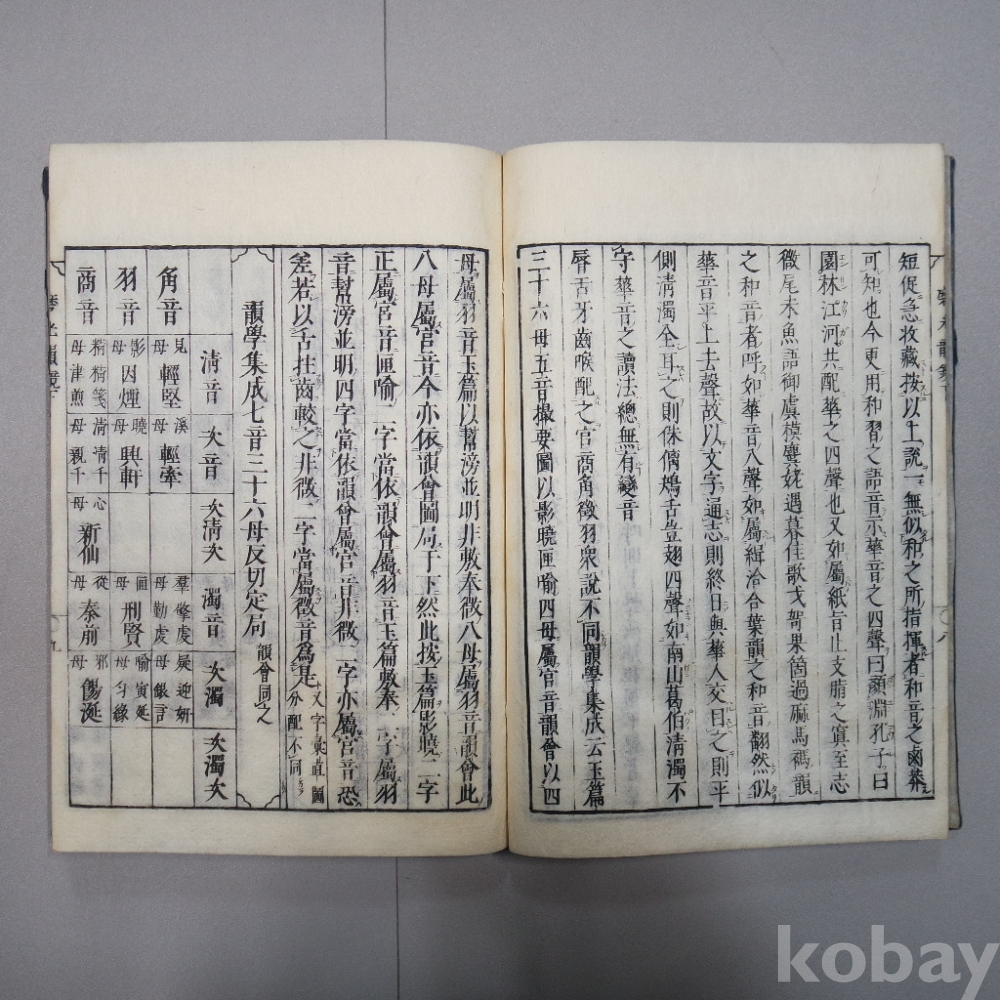 短促急收藏按以上說一無似和之所指揮者和音之鹵莽
可知也今更用和習之語音示華音之四聲曰顔淵孔子曰
園林江河共配華之四聲也又如屬紙旨止支脂之寘至志
微尾未魚語御虞模麌姥遇暮佳歌戈哿果箇過麻馬禡韻
之和音者呼如華音八聲如屬緝洽合葉韻之和音翻然似
華音平上去聲故以文字通志則終日與華人交曰之則平
側清濁全耳之則侏㒧鴂舌豈翅四聲如南山葛伯清濁不
守華音之讀法總無有變音
唇舌牙齒喉配之宮商角徵羽衆說不同韻學集成云玉篇
三十六母五音撮要圖以影曉匣喻四母屬宮音韻會以四
母屬羽音玉篇以幫滂並明非敷奉微八母屬羽音韻會此
八母屬宮音今亦依韻會圖局于下然此按玉篇影曉二字
正屬宮音匣喻二字當依韻會屬羽音玉篇敷奉二字屬羽
音幫滂並明四字當依韻會屬宮音非微二字亦屬宮音恐
差若以舌拄齒較之非微二字當屬徵音為是 又字彙直圖分配不同
韻學集成七音三十六母反切定局 韻會同之
清音 次音 次清次 濁音 次濁 次濁次
角音 見母 輕堅 溪母 輕牽 羣母 擎虔勤虔 疑母 迎妍銀言
羽音 影母 因煙 曉母 興軒 匣母 刑賢 喻母 寅延勻緣
商音 精母 精箋津煎 清母 清千親千 心母 新仙 從母 秦前 邪母 餳涎
八
九
kobay